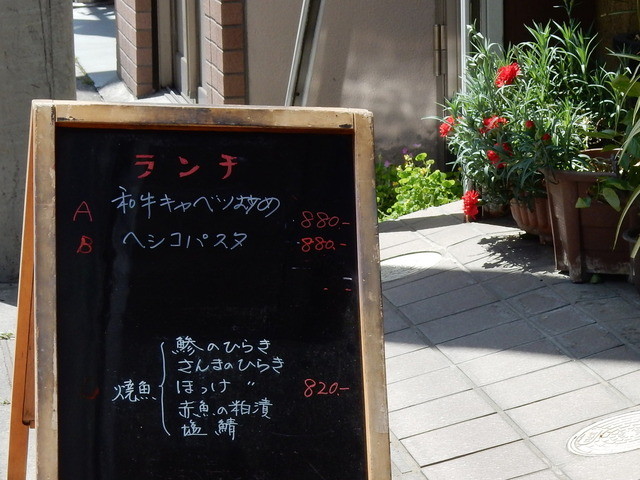 ランチ
A 和牛キャベツ炒め 880.-
B ヘシコパスタ 880.-
鯵のひらき
さんまのひらき
焼魚 ほっけ 〃 820.-
赤魚の粕漬
塩鯖